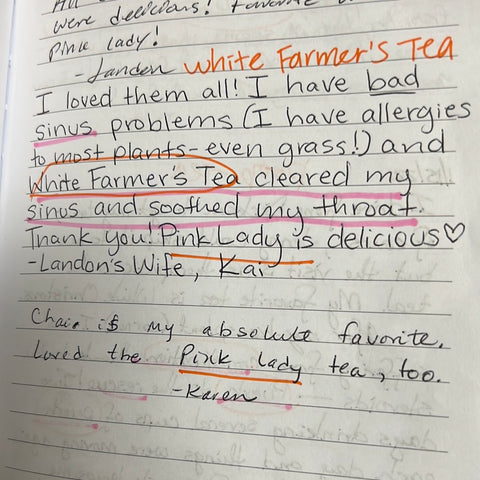 All
were delicious! Favorite
Pink lady!
-Landon White Farmer's Tea
I loved them all! I have bad
sinus problems (I have allergies
to most plants-even grass!) and
White Farmer's Tea cleared my
sinus and soothed my throat.
Thank you! Pink Lady is delicious♡
-Landon's Wife, Kai
Chai is my absolute favorite.
Loved the Pink lady tea, too.
-Karen